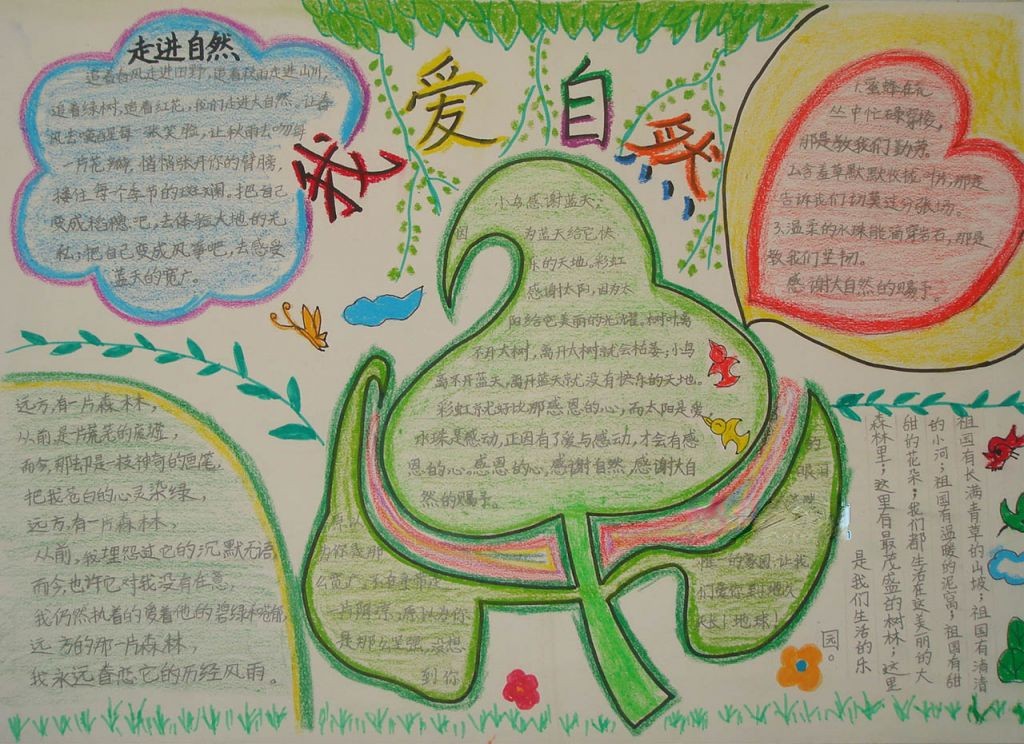 我爱自然
走进自然
追着春风走进田野,追着秋雨走进山川,
追着绿树,追着红花,我们走进大自然。让春
风去唤醒每一张笑脸,让秋雨去吻每
一片花瓣,悄悄张开你的臂膀,
接住每个季节的斑斓。把自己
变成稻穗吧,去体验大地的无
私;把自己变成风筝吧,去感受
蓝天的宽广。
1.蜜蜂在花
丛中忙碌穿梭,
那是教我们勤劳。
2.含羞草默默收拢叶,那是
告诉我们切莫过分张扬。
3.温柔的水珠能滴穿岩石,那是
教我们坚韧。
感谢大自然的赐予。
小鸟感谢蓝天;
因为蓝天给它快
乐的天地。彩虹
感谢太阳,因为太
阳给它美丽的光耀。树叶离
不开大树,离开大树就会枯萎;小鸟
离不开蓝天,离开蓝天就没有快乐的天地。
彩虹就好比那感恩的心,而太阳是爱
水珠是感动,正因有了爱与感动,才会有感
恩的心。感恩的心,感谢自然,感谢大自
然的赐予。
远方,有一片森林,
从前是一片荒芜的废墟,
而今,那却是一枝神奇的画笔,
把我苍白的心灵染绿,
远方,有一片森林,
从前,我埋怨过它的沉默无语
而今,也许它对我没有在意,
我仍然执着的爱着他的碧绿和葱郁
远方的那一片森林,
我永远眷恋它的历经风雨。
原以
为你是那
么宽广,
一片阴凉,原以为你
是那么坚强,没想
到你
为
眼泪
唯一的家园,让我
们爱你到地久
天长!地球!
祖国有长满青草的山坡;祖国有清清
的小河;祖国有温暖的泥窝;祖国有甜
甜的花朵;我们都生活在这美丽的大
森林里;这里有最茂盛的树林;这里
是我们生活的乐
园。